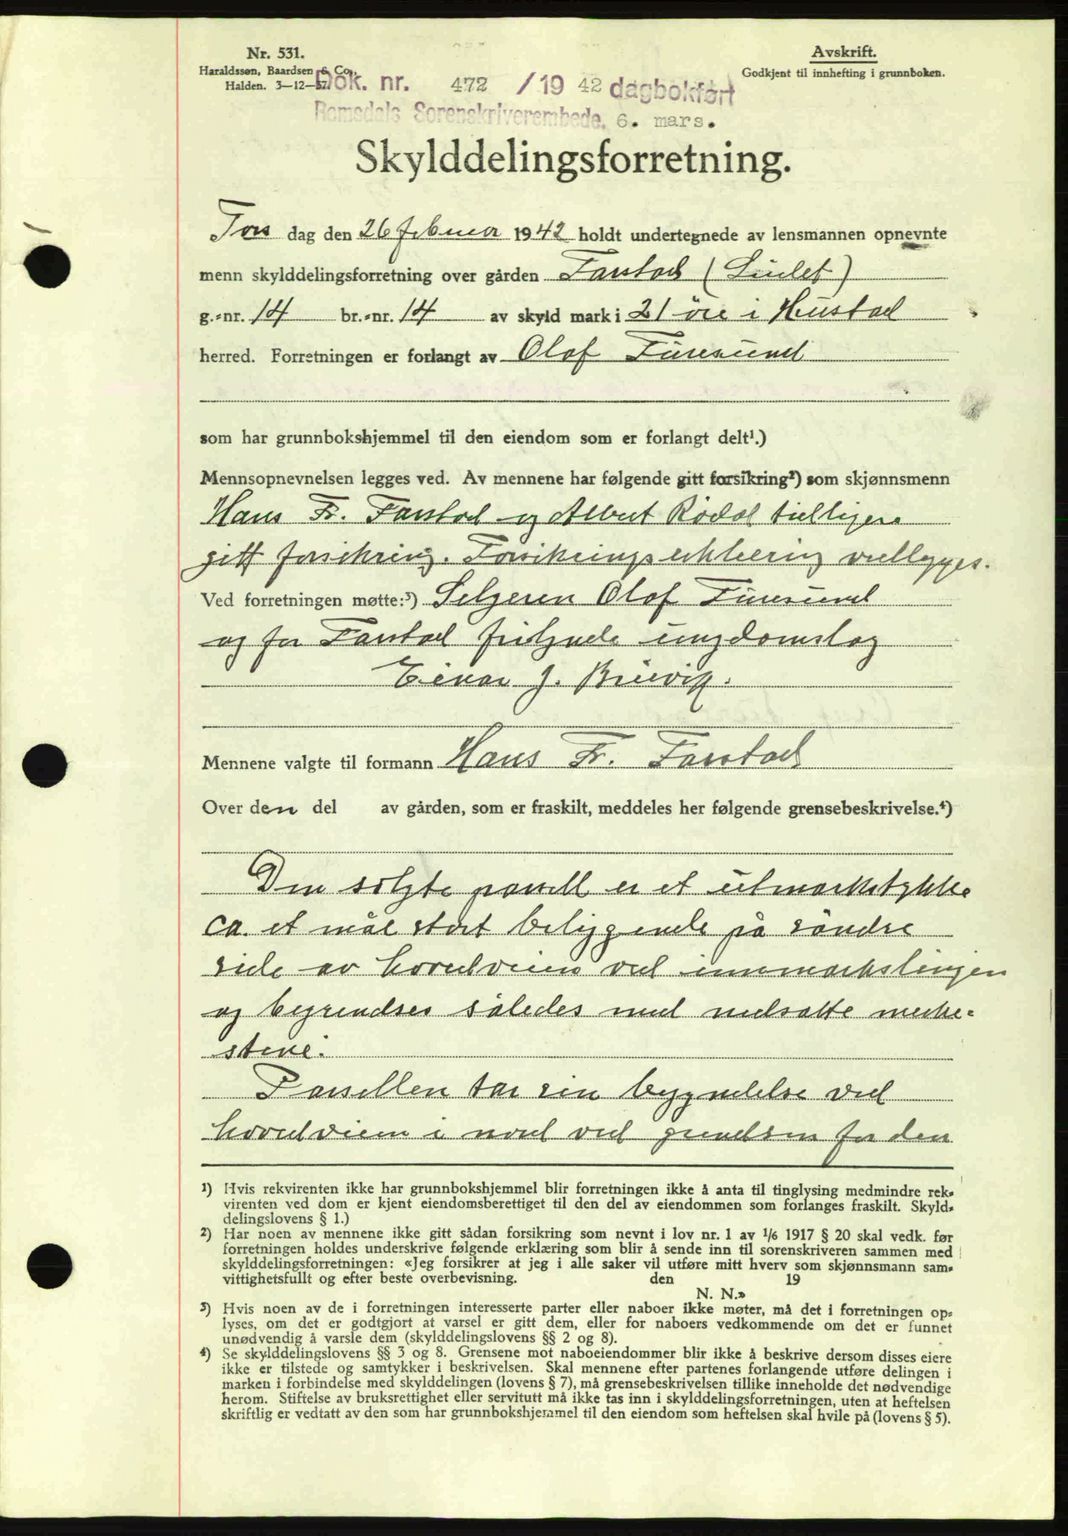 Nr. 531.
Haraldssøn, Baardsen & Co.,
Halden. 3—12—37.
Avskrift.
Godkjent til innhefting i grunnboken.
Dok. nr. 472 /19 42 dagbokført
Romsdals Sorenskriverembede. 6. mars.
Skylddelingsforretning.
Tors dag den 26 februar 1942 holdt undertegnede av lensmannen opnevnte
menn skylddelingsforretning over gården Farstad
g.-nr. 14 br.-nr. 14 av skyld mark i 21 öre i Hustad
herred. Forretningen er forlangt av Olaf Furesund
som har grunnbokshjemmel til den eiendom som er forlangt delt¹.)
Mennsopnevnelsen legges ved. Av mennene har følgende gitt forsikring²) som skjønnsmenn
Hans Fr. Farstad og Albert Rödal tidligere
gitt forsikring. Forsikringserklæring vedlegges.
Ved forretningen møtte:³) Selgeren Olaf Furesund
og for Farstad frilynde ungdomslag
Einar J. Breivik.
Mennene valgte til formann Hans Fr. Farstad
Over den del av gården, som er fraskilt, meddeles her følgende grensebeskrivelse.⁴)
Den solgte parsell er et utmarkstykke
ca. et mål stort beliggende på söndre
side av hovedveien ved innmarkslinjen
og begrendses således med nedsatte merke=
stene:
Parsellen tar sin begyndelse ved
hovedveien i nord ved grendsen for den
¹) Hvis rekvirenten ikke har grunnbokshjemmel blir forretningen ikke å anta til tinglysing medmindre rek-
virenten ved dom er kjent eiendomsberettiget til den del av eiendommen som forlanges fraskilt. Skyld-
delingslovens § 1.)
²) Har noen av mennene ikke gitt sådan forsikring som nevnt i lov nr. 1 av 1/6 1917 § 20 skal vedk. før
forretningen holdes underskrive følgende erklæring som blir å sende inn til sorenskriveren sammen med
skylddelingsforretningen: «Jeg forsikrer at jeg i alle saker vil utføre mitt hverv som skjønnsmann sam-
vittighetsfullt og efter beste overbevisning. den 19
N. N.»
³) Hvis noen av de i forretningen interesserte parter eller naboer ikke møter, må det i forretningen op-
lyses, om det er godtgjort at varsel er gitt dem, eller for naboers vedkommende om det er funnet
unødvendig å varsle dem (skylddelingslovens §§ 2 og 8).
⁴) Se skylddelingslovens §§ 3 og 8. Grensene mot naboeiendommer blir ikke å beskrive dersom disses eiere
ikke er tilstede og samtykker i beskrivelsen. Skal mennene efter partenes forlangende utføre delingen i
marken i forbindelse med skylddelingen (lovens § 7), må grensebeskrivelsen tillike inneholde det nødvendige
herom. Stiftelse av bruksrettighet eller servitutt må ikke tas inn i skylddelingsforretningen, uten at heftelsen
skriftlig er vedtatt av den som har grunnbokshjemmel til den eiendom som heftelsen skal hvile på (lovens § 5).